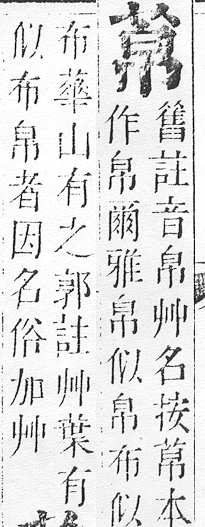 舊註音帛艸名按本
作帛爾雅帛似帛布似
布華山有之郭註艸葉有
似布帛者因名俗加艸